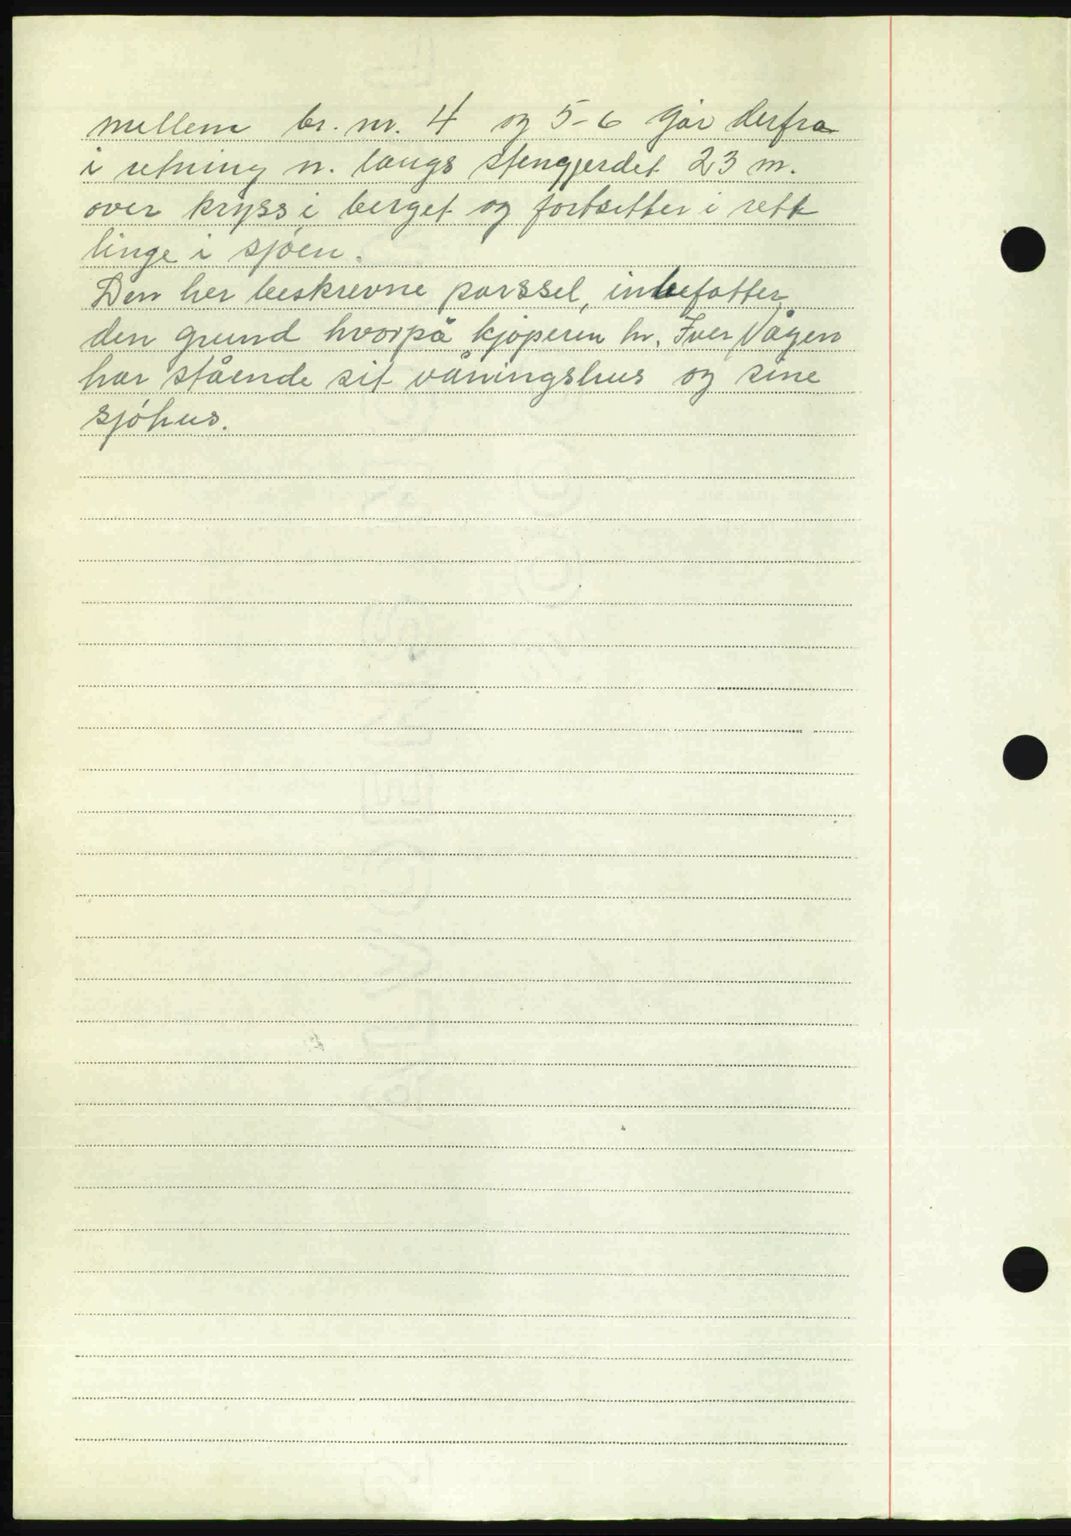 mellem br. nr. 4 og 5-6 går derfra
i retning n. langs stengjerdet 23 m.
over kryss i berget og fortsetter i rett
linge i sjøen.
Den her beskrevne parssel, inbefatter
den grund hvorpå kjøperen hr. Iver Vågen
har stående sit våningshus og sine
sjøhus.